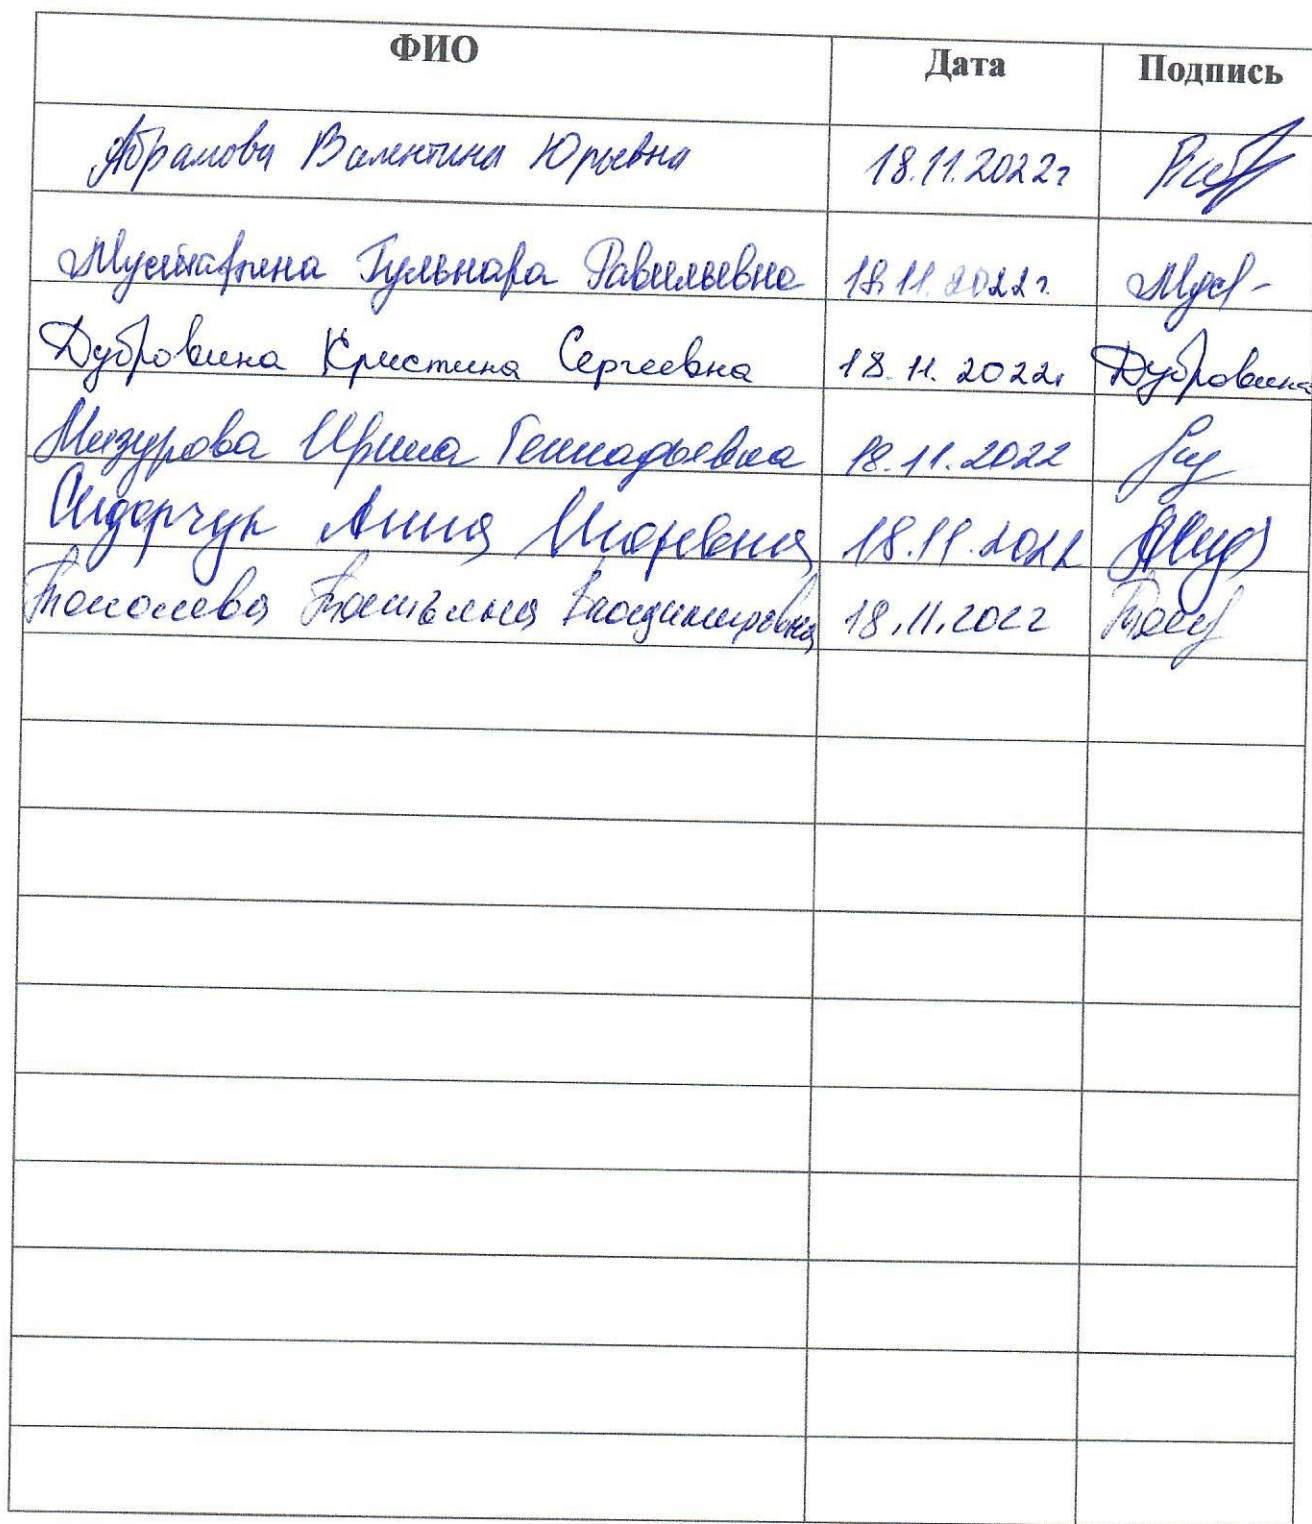 ФИО Дата Подпись
Абрамова Валентина Юрьевна 18.11.2022г
Мустафина Гульнара Равильевна 18.11.2022г.
Дубровина Кристина Сергеевна 18.11.2022г Дубровина
Мизурова Ирина Геннадьевна 18.11.2022
Сидорчук Анна Игоревна 18.11.2022
Татьяна Владимировна 18.11.2022